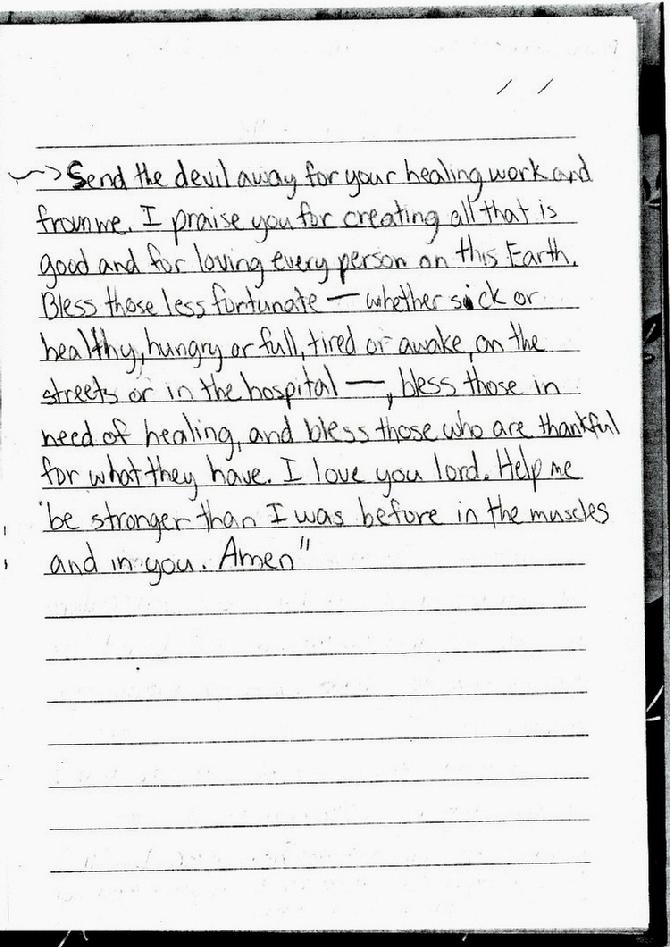 Send the devil away for your healing work and
from me. I praise you for creating all that is
good and for loving every person on this Earth.
Bless those less fortunate — whether sick or
healthy, hungry or full, tired or awake, on the
streets or in the hospital —, bless those in
need of healing, and bless those who are thankful
for what they have. I love you lord. Help me
be stronger than I was before in the muscles
and in you. Amen"